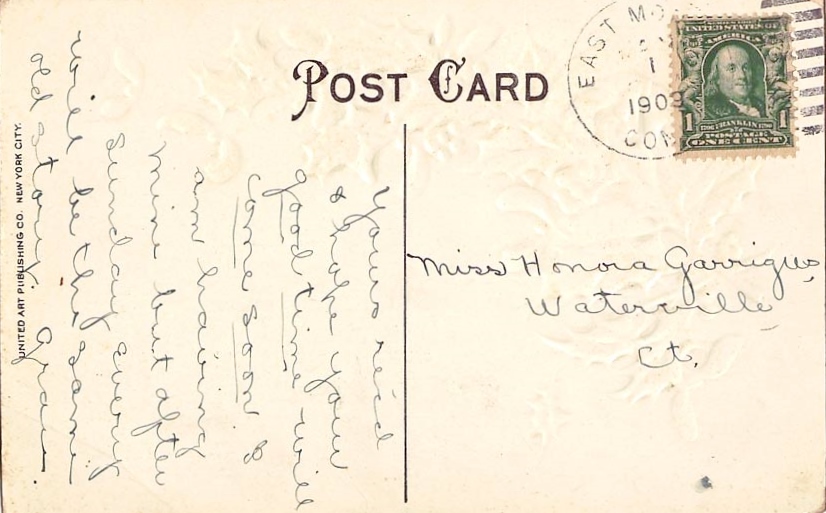 POST CARD
EAST
1
1909
UNITED STATES OF
AMERICA
1 FRANKLIN 1
POSTAGE
ONE CENT
Yours rec'd
& hope your
good time will
come soon. I
am having
mine but after
Sunday every
will be the same
old story.
Miss Honora Garrigus
Waterville
Ct.
UNITED ART PUBLISHING CO. NEW YORK CITY.